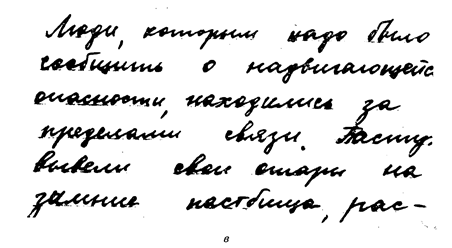 Люди, которым надо было
сообщить о надвигающейс
опасности, находились за
пределами связи. Пасту.
вывели свои отары на
зимние пастбища, рас-
в